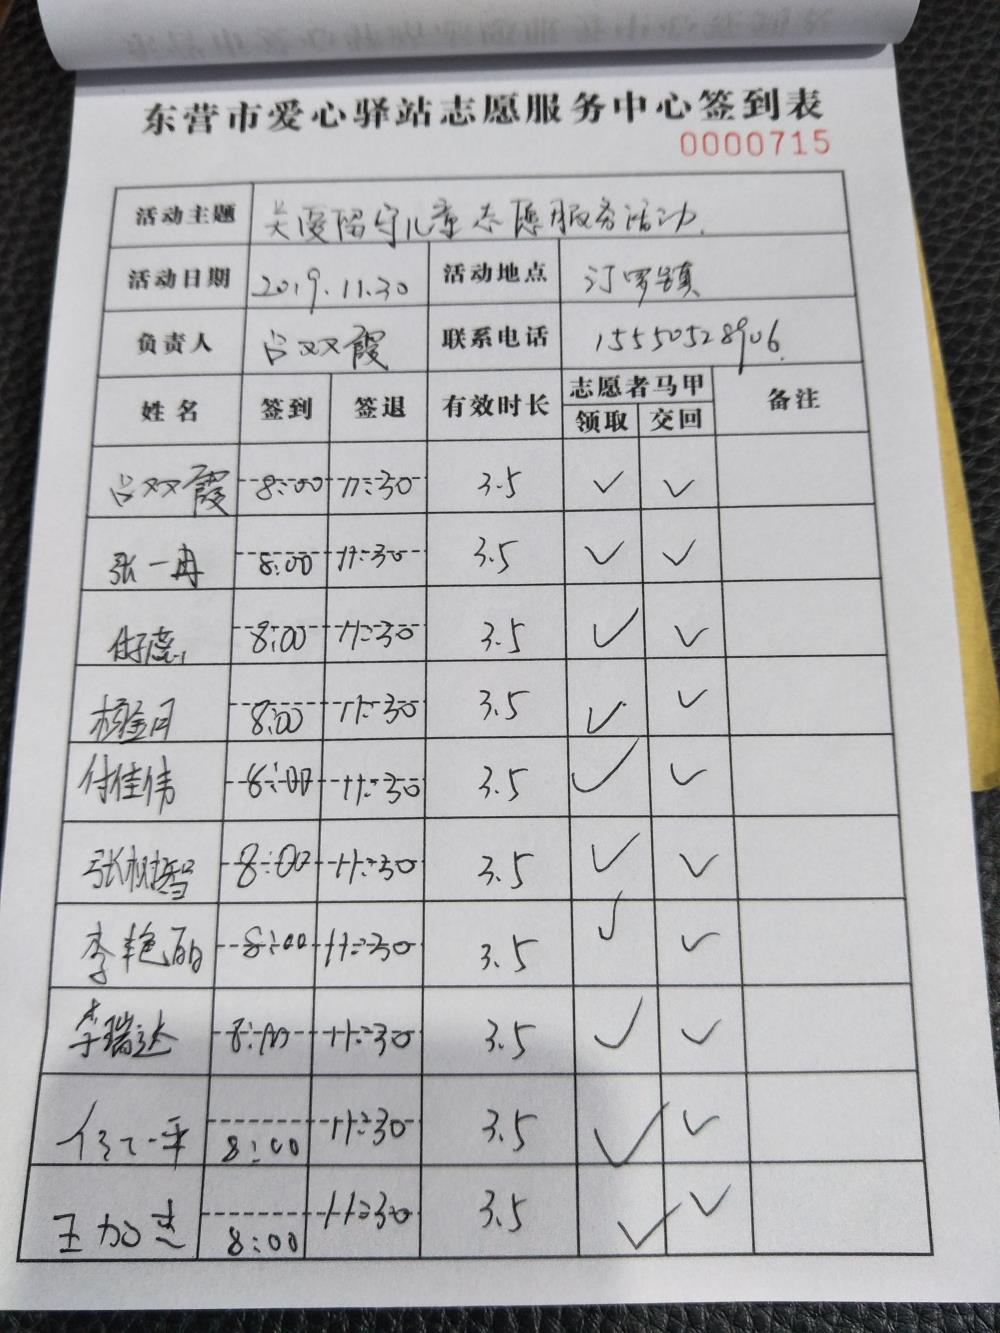 东营市爱心驿站志愿服务中心签到表
0000715
活动主题 关爱留守儿童志愿服务活动.
活动日期 2019.11.30 活动地点 汀罗镇
负责人 吕双霞 联系电话 15550528906
姓名 签到 签退 有效时长 志愿者马甲 备注
领取 交回
吕双霞 8:00 11:30 3.5 ✓ ✓
张一冉 8:00 11:30 3.5 ✓ ✓
8:00 11:30 3.5 ✓ ✓
8:00 11:30 3.5 ✓ ✓
付佳伟 8:00 11:30 3.5 ✓ ✓
8:00 11:30 3.5 ✓ ✓
李艳丽 8:00 11:30 3.5 ✓ ✓
李瑞达 8:00 11:30 3.5 ✓ ✓
8:00 11:30 3.5 ✓ ✓
王加 8:00 11:30 3.5 ✓ ✓